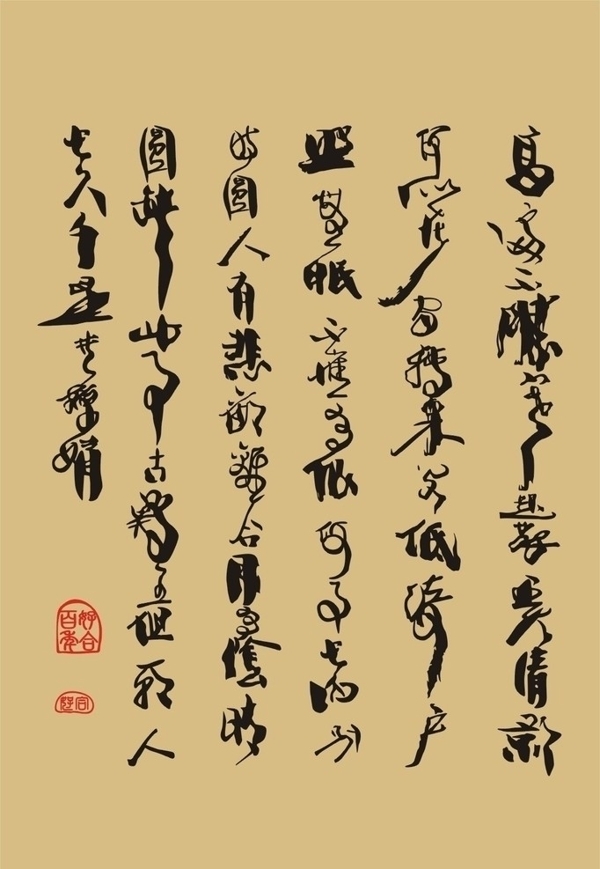 高處不勝寒起舞弄清影
何似在人間轉朱閣低綺戶
照無眠不應有恨何事長向別
時圓人有悲歡離合月有陰晴
圓缺此事古難全但願人
長久千里共嬋娟
好合
百年